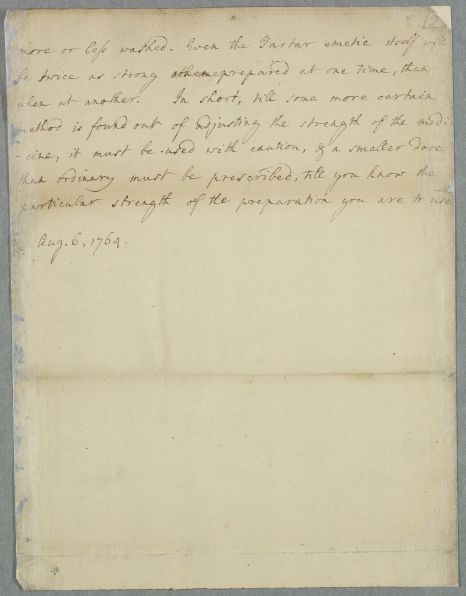 more or less washed. Even the Tartar emetic itself will
be twice as strong when prepared at one time, than
when at another. In short, till some more certain
method is found out of adjusting the strength of the medi-
-cine, it must be used with caution, & a smaller dose
than ordinary must be prescribed, till you know the
particular strength of the preparation you are to use
Aug. 6, 1764.